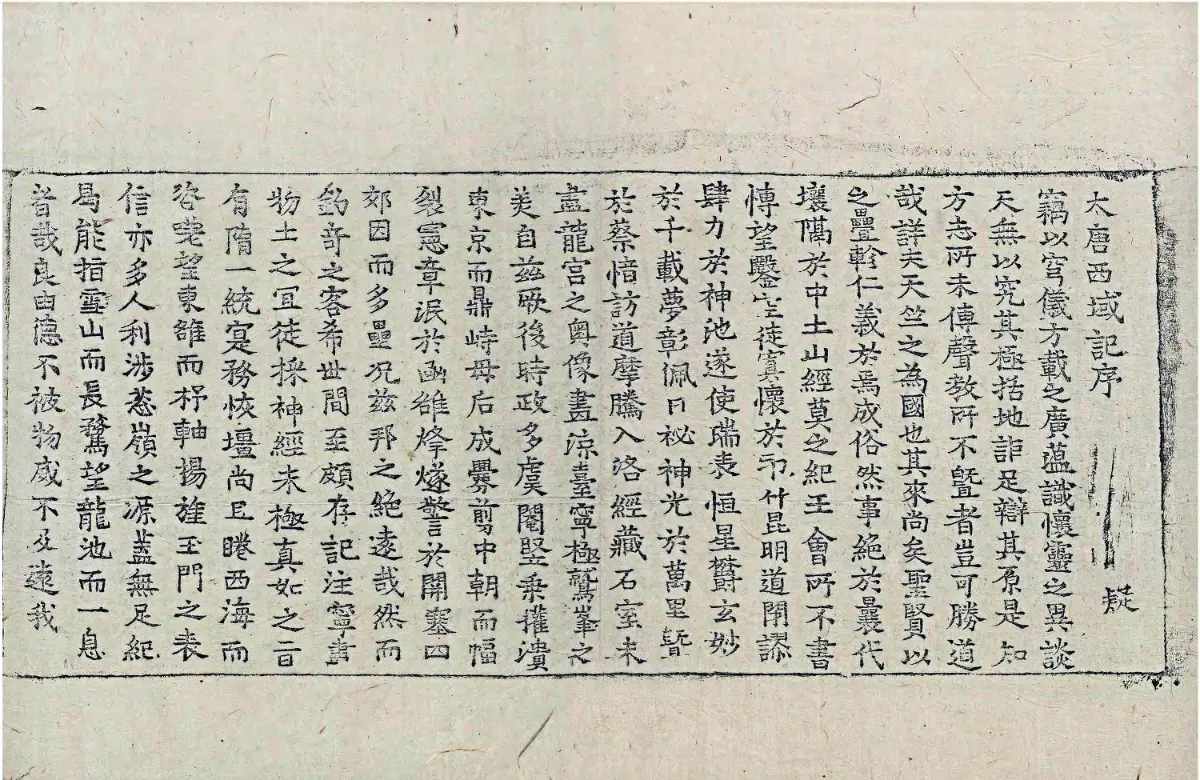 大唐西域記序 疑
竊以穹儀方載之廣蘊識懷靈之異談
天無以究其極括地詎足辯其原是知
方志所未傳聲教所不曁者豈可勝道
哉詳夫天竺之為國也其來尚矣聖賢以
之疊軫仁義於焉成俗然事絕於曩代
壤隔於中土山經莫之紀王會所不書
博望鑿空徒寘懷於邛竹昆明道閉謬
肆力於神池遂使瑞表恒星欝玄妙
於千載夢彰佩日祕神光於萬里暨
於蔡愔訪道摩騰入洛經藏石室未
盡龍宮之奧像畫涼臺寧極鷲峯之
美自茲厥後時政多虞閹竪乘權潰
東京而鼎峙母后成釁剪中朝而幅
裂憲章泯於函雒烽燧警於關塞四
郊因而多壘況茲邦之絕遠哉然而
釣奇之客希世間至頗存記注寧盡
物土之宜徒採神經未極真如之旨
有隋一統寔務恢壃尚且睠西海而
咨嗟望東雒而杼軸揚旌玉門之表
信亦多人利涉葱嶺之源蓋無足紀
曷能指雪山而長騖望龍池而一息
者哉良由德不被物威不及遠我